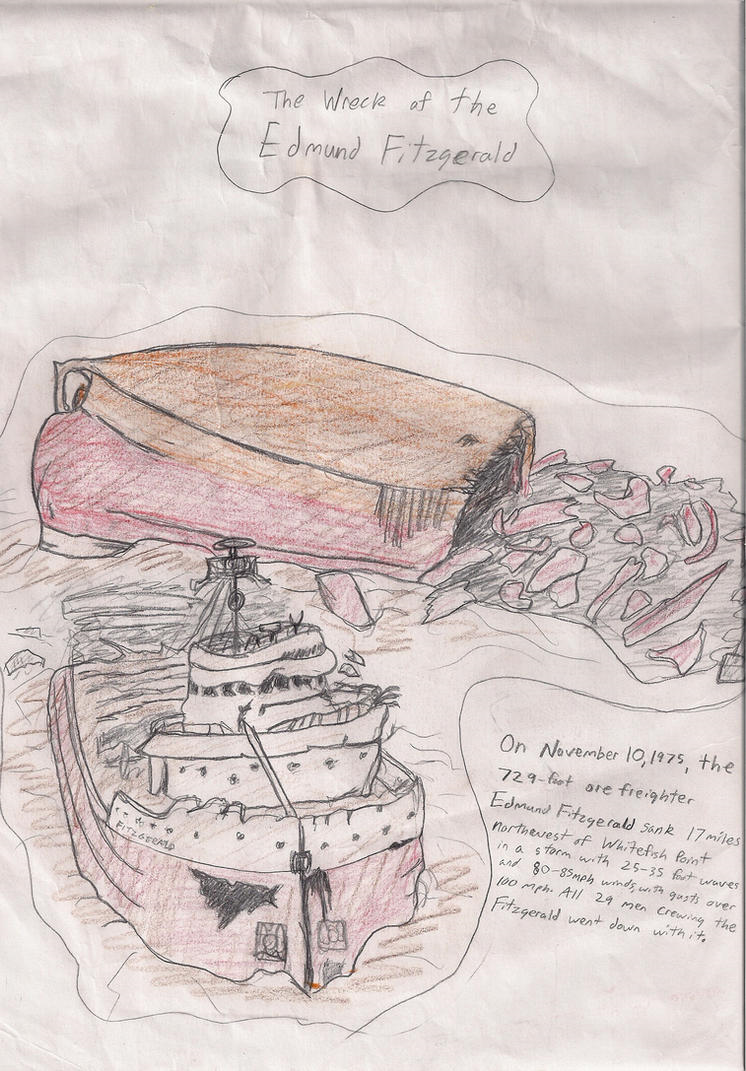 The Wreck of the
Edmund Fitzgerald
FITZGERALD
On November 10, 1975, the
729-foot ore freighter
Edmund Fitzgerald sank 17 miles
northwest of Whitefish Point
in a storm with 25-35 foot waves
and 80-85mph winds, with gusts over
100 mph. All 29 men crewing the
Fitzgerald went down with it.